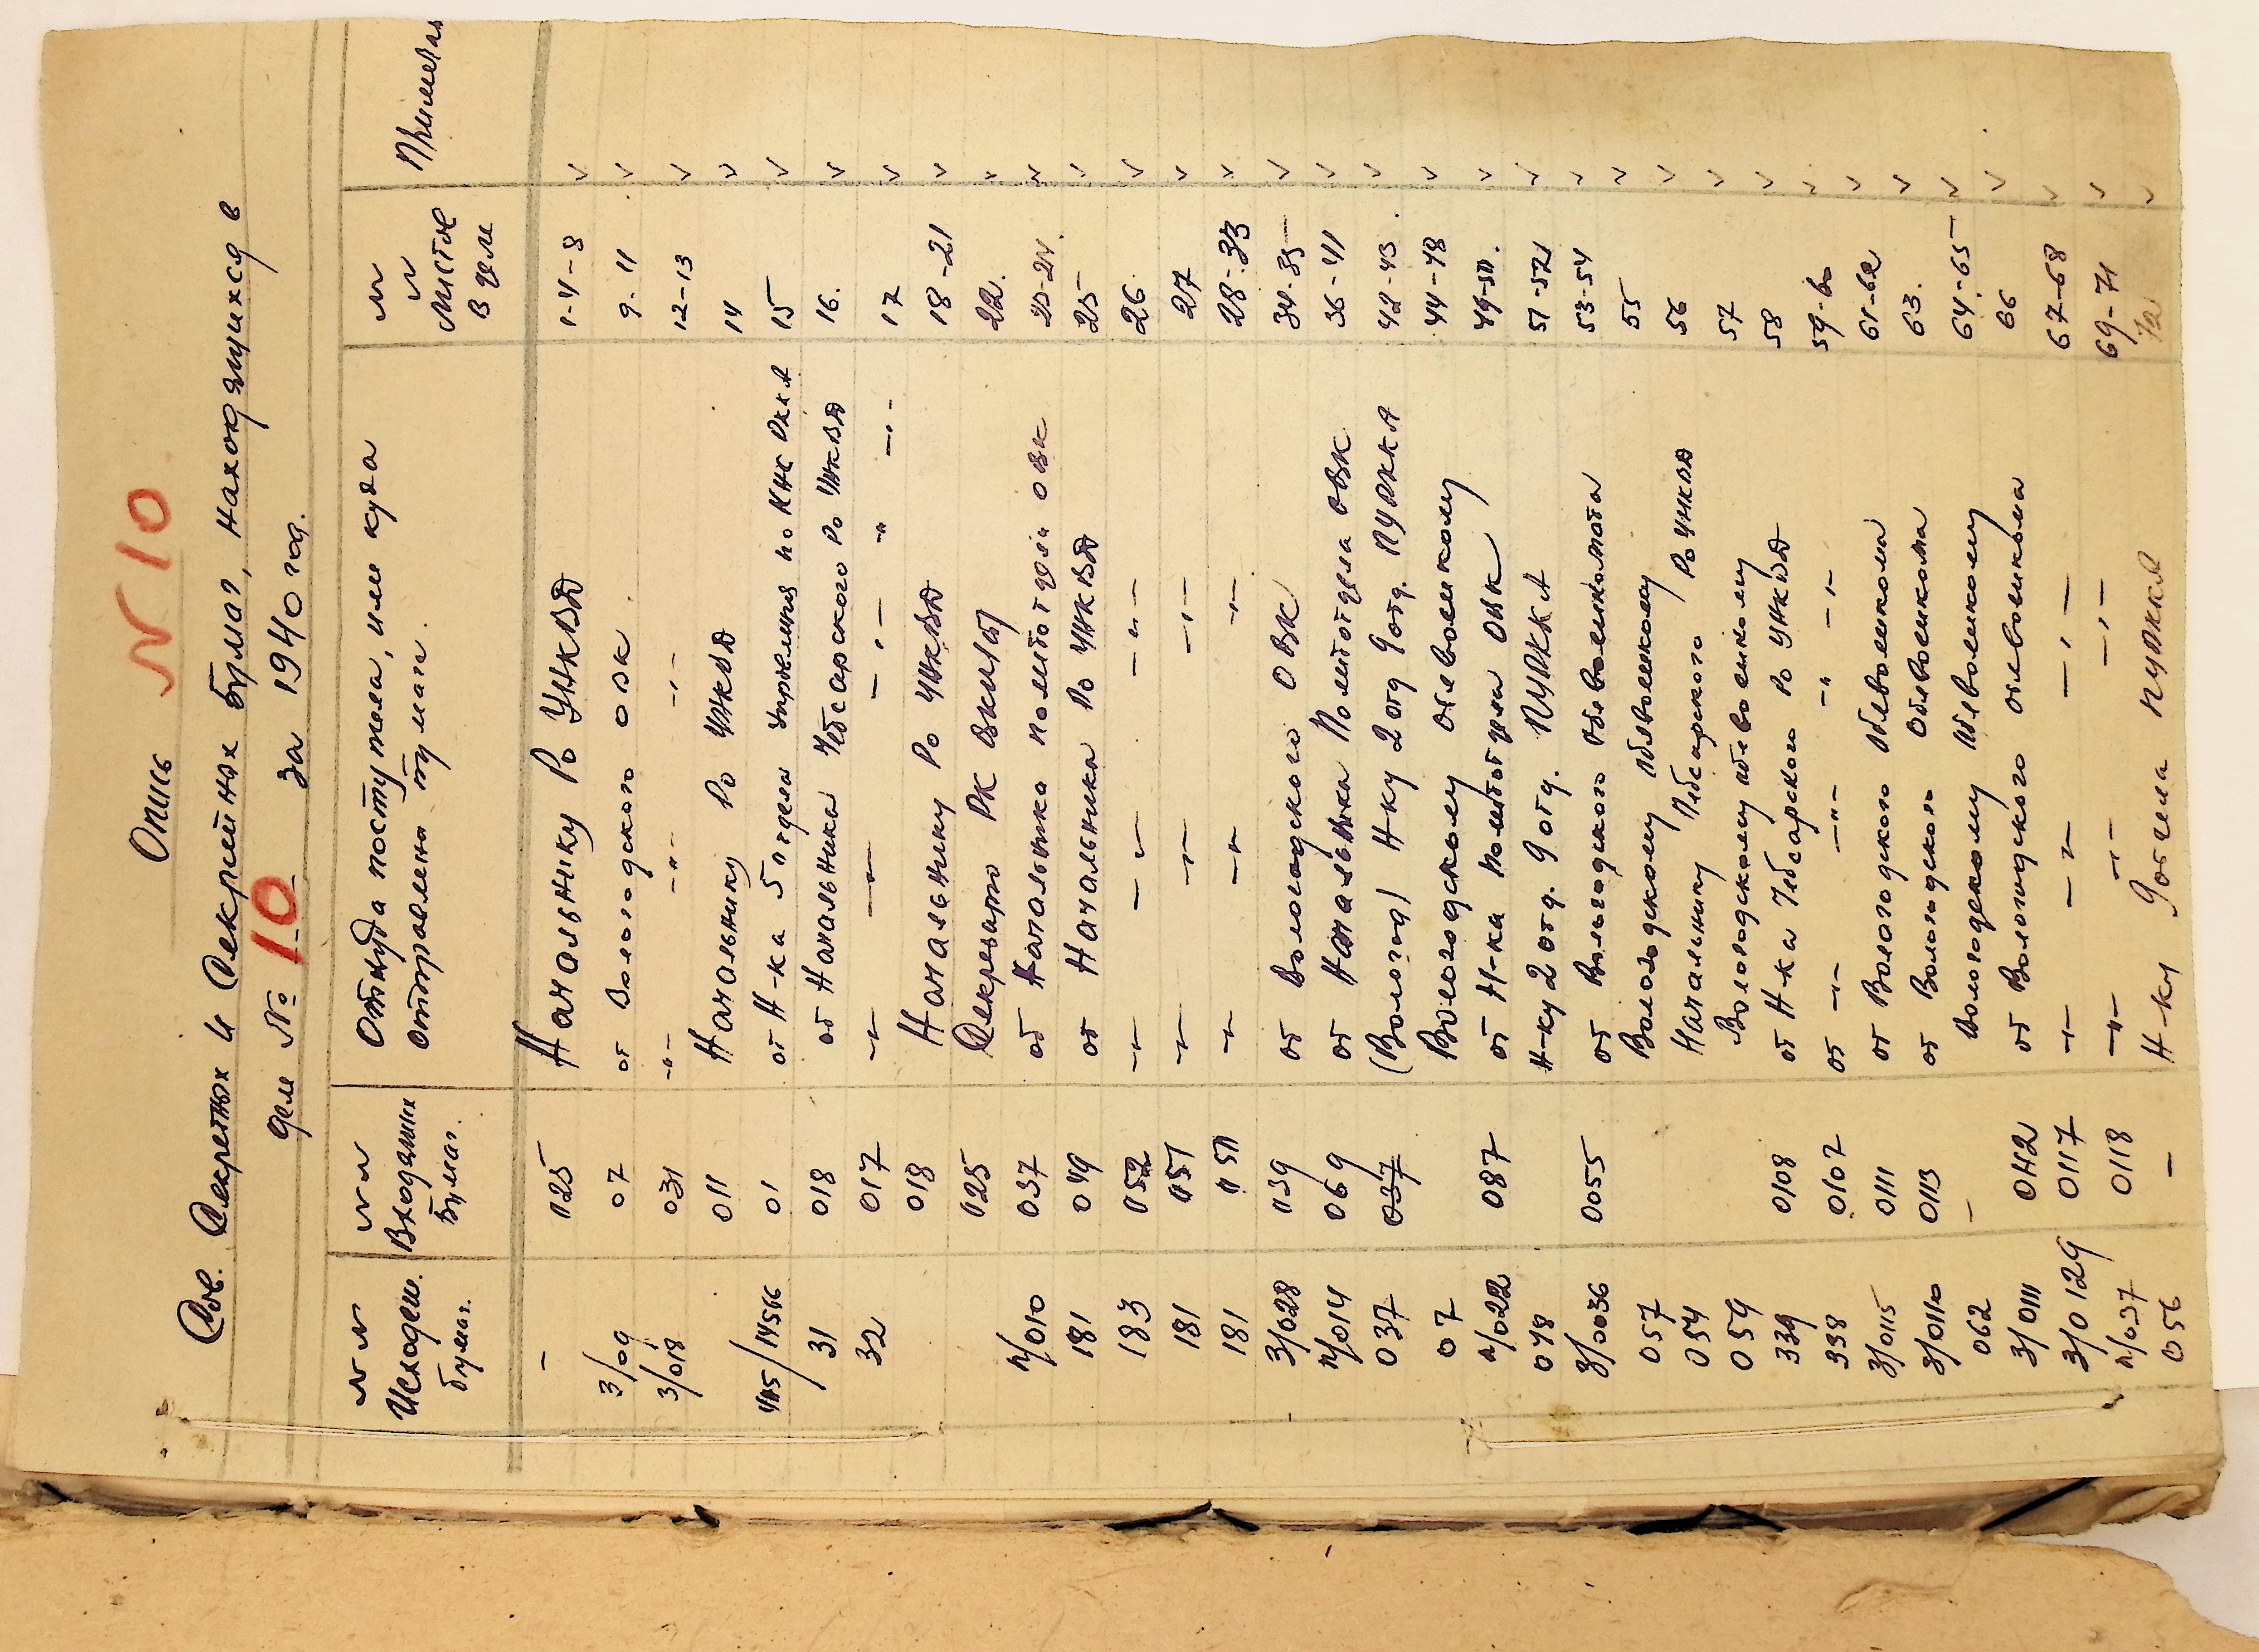 Опись № 10
Сов. Секретных и Секретных бумаг, находящихся в
деле № 10 за 1940 год.
№ № Исходящ. бумаг.
№ № Входящих бумаг.
Откуда поступила, или куда отправлена бумага.
№ № листов в деле
Примечан
- 025 Начальнику РО УНКВД 1-4-8 v
3/09 07 от Вологодского ОВК 9-11 v
3/018 031 -"- -"- -"- 12-13 v
011 Начальнику РО УНКВД 14 v
01 от Н-ка 5 отдела Управления по КНС 15 v
31 018 от Начальника Чебсарского РО УНКВД 16. v
32 017 -"- -"- -"- " -"- 17 v
018 Начальнику РО УНКВД 18-21 v
025 Секретарю РК ВКП(б) 22. v
п/010 037 от Начальника политотдела ОВК 23-24. v
181 049 от Начальника РО УНКВД 25 v
183 052 -"- -"- -"- 26 v
181 051 -"- -"- -"- 27 v
181 050 -"- -"- -"- 28-33 v
3/028 039 от Вологодского ОВК 34-35 v
п/014 069 от Начальника Политотдела ОВК 36-41 v
037 037 (Вологда) Нку 2 отд 9 отд. ПУРККА 42-43. v
07 Вологодскому облвоенкому 44-48 v
п/022 087 от Н-ка политотдела ОВК 49-50. v
048 Н-ку 2 отд. 9 отд. ПУРККА 51-52 v
3/0036 0055 от Вологодского Облвоенкомата 53-54 v
057 Вологодскому облвоенкому 55 v
054 Начальнику Чебсарского РО УНКВД 56 v
059 Вологодскому облвоенкому 57 v
339 0108 от Н-ка Чебсарского РО УНКВД 58 v
338 0107 от -"- -"- -"- -"- 59-60 v
3/0115 0111 от Вологодского Облвоенкома 61-62 v
3/0110 0113 от Вологодского Облвоенкома 63. v
062 - Вологодскому Облвоенкому 64-65 v
3/0111 0112 от Вологодского облвоенкома 66 v
3/0129 0117 -"- -"- -"- 67-68 v
п/037 0118 -"- -"- -"- 69-71 v
056 - Н-ку 9 отдела ПУРККА 72 v